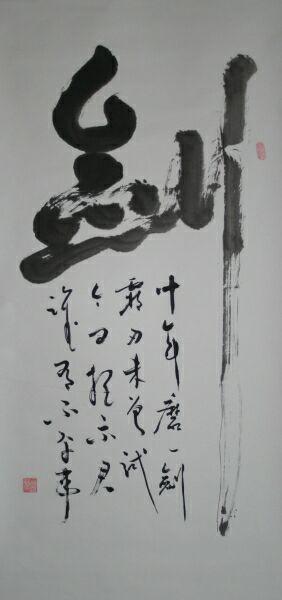 劍
十年磨一劍
霜刃未曾試
今日把示君
誰有不平事